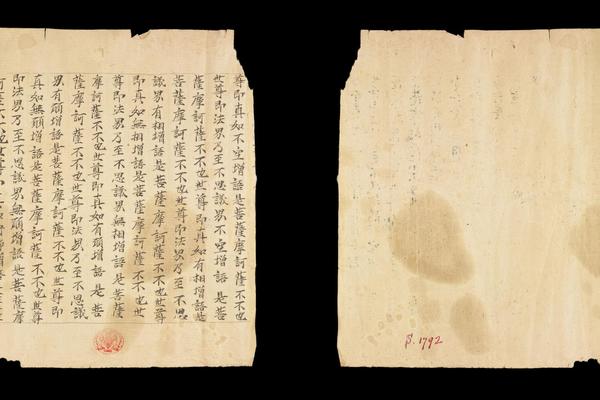 尊即真如不空增語是菩薩摩訶薩不不也
世尊即法界乃至不思議界不空增語是菩
薩摩訶薩不不也世尊即真如有相增語是
菩薩摩訶薩不不也世尊即法界乃至不思
議界有相增語是菩薩摩訶薩不不也世尊
即真如無相增語是菩薩摩訶薩不不也世
尊即法界乃至不思議界無相增語是菩薩
摩訶薩不不也世尊即真如有願增語是菩
薩摩訶薩不不也世尊即法界乃至不思議
界有願增語是菩薩摩訶薩不不也世尊即
真如無願增語是菩薩摩訶薩不不也世尊
即法界乃至不思議界無願增語是菩薩摩
S. 1792